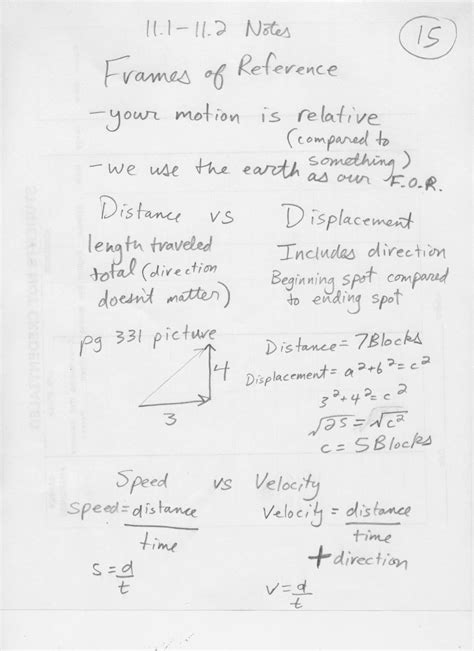 11.1-11.2 Notes
15
Frames of Reference
-your motion is relative
(compared to
something)
-we use the earth as our F.O.R.
Distance vs Displacement
length traveled
total (direction
doesn't matter)
Includes direction
Beginning spot compared
to ending spot
pg 331 picture
4
3
Distance = 7Blocks
Displacement = a²+b²=c²
3²+4²=c²
√25=√c²
c = 5Blocks
Speed vs Velocity
speed=distance
time
s=d
t
Velocity = distance
time
+direction
v=d
t